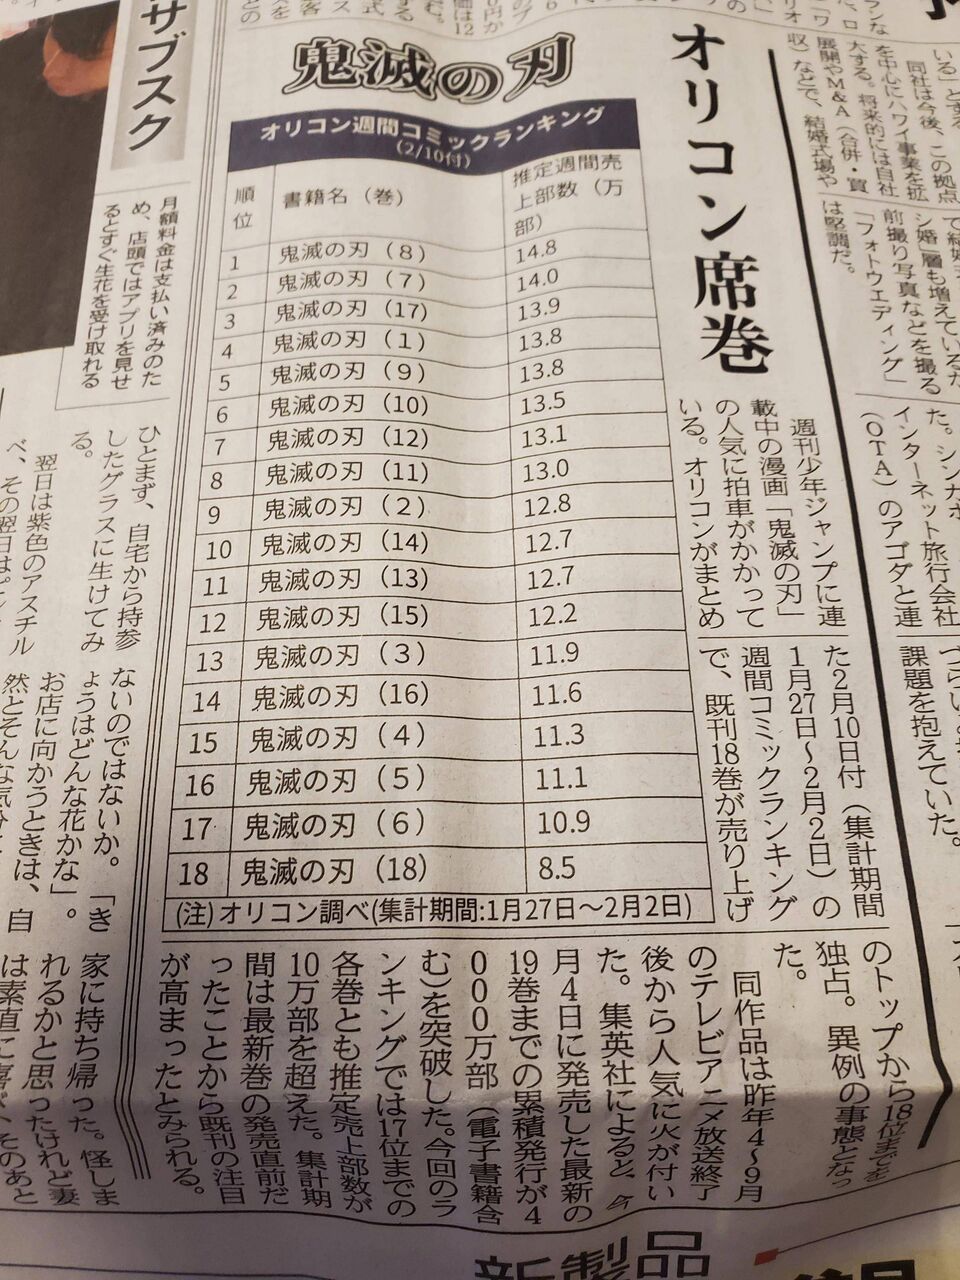 鬼滅の刃
オリコン席巻
オリコン週間コミックランキング
(2/10付)
順位 書籍名（巻） 推定週間売上部数（万部）
1 鬼滅の刃（8） 14.8
2 鬼滅の刃（7） 14.0
3 鬼滅の刃（17） 13.9
4 鬼滅の刃（1） 13.8
5 鬼滅の刃（9） 13.8
6 鬼滅の刃（10） 13.5
7 鬼滅の刃（12） 13.1
8 鬼滅の刃（11） 13.0
9 鬼滅の刃（2） 12.8
10 鬼滅の刃（14） 12.7
11 鬼滅の刃（13） 12.7
12 鬼滅の刃（15） 12.2
13 鬼滅の刃（3） 11.9
14 鬼滅の刃（16） 11.6
15 鬼滅の刃（4） 11.3
16 鬼滅の刃（5） 11.1
17 鬼滅の刃（6） 10.9
18 鬼滅の刃（18） 8.5
(注)オリコン調べ(集計期間:1月27日～2月2日)
週刊少年ジャンプに連
載中の漫画「鬼滅の刃」
の人気に拍車がかかって
いる。オリコンがまとめ
た2月10日付（集計期間
1月27日～2月2日）の
週間コミックランキング
で、既刊18巻が売り上げ
のトップから18位までを
独占。異例の事態となっ
た。
同作品は昨年4～9月
のテレビアニメ放送終了
後から人気に火が付い
た。集英社によると、今
月4日に発売した最新の
19巻までの累積発行が4
000万部（電子書籍含
む）を突破した。今回のラ
ンキングでは17位までの
各巻とも推定売上部数が
10万部を超えた。集計期
間は最新巻の発売直前だ
ったことから既刊の注目
が高まったとみられる。
いる」とする。
同社は今後、この拠点
を中心にハワイ事業を拡
大する。将来的には自社
展開やM&A（合併・買
収）などで、結婚式場や
シ婚」層も増えているが
前撮り写真などを撮る
「フォトウエディング」
は堅調だ。
インターネット旅行会社
（OTA）のアゴダと連
課題を抱えていた。
サブスク
月額料金は支払い済みのた
め、店頭ではアプリを見せ
るとすぐ生花を受け取れる
ひとまず、自宅から持参
したグラスに生けてみ
る。
翌日は紫色のアスチル
ないのではないか。「き
ょうはどんな花かな」。
お店に向かうときは、自
家に持ち帰った。怪しま
れるかと思ったけれど妻
新製品